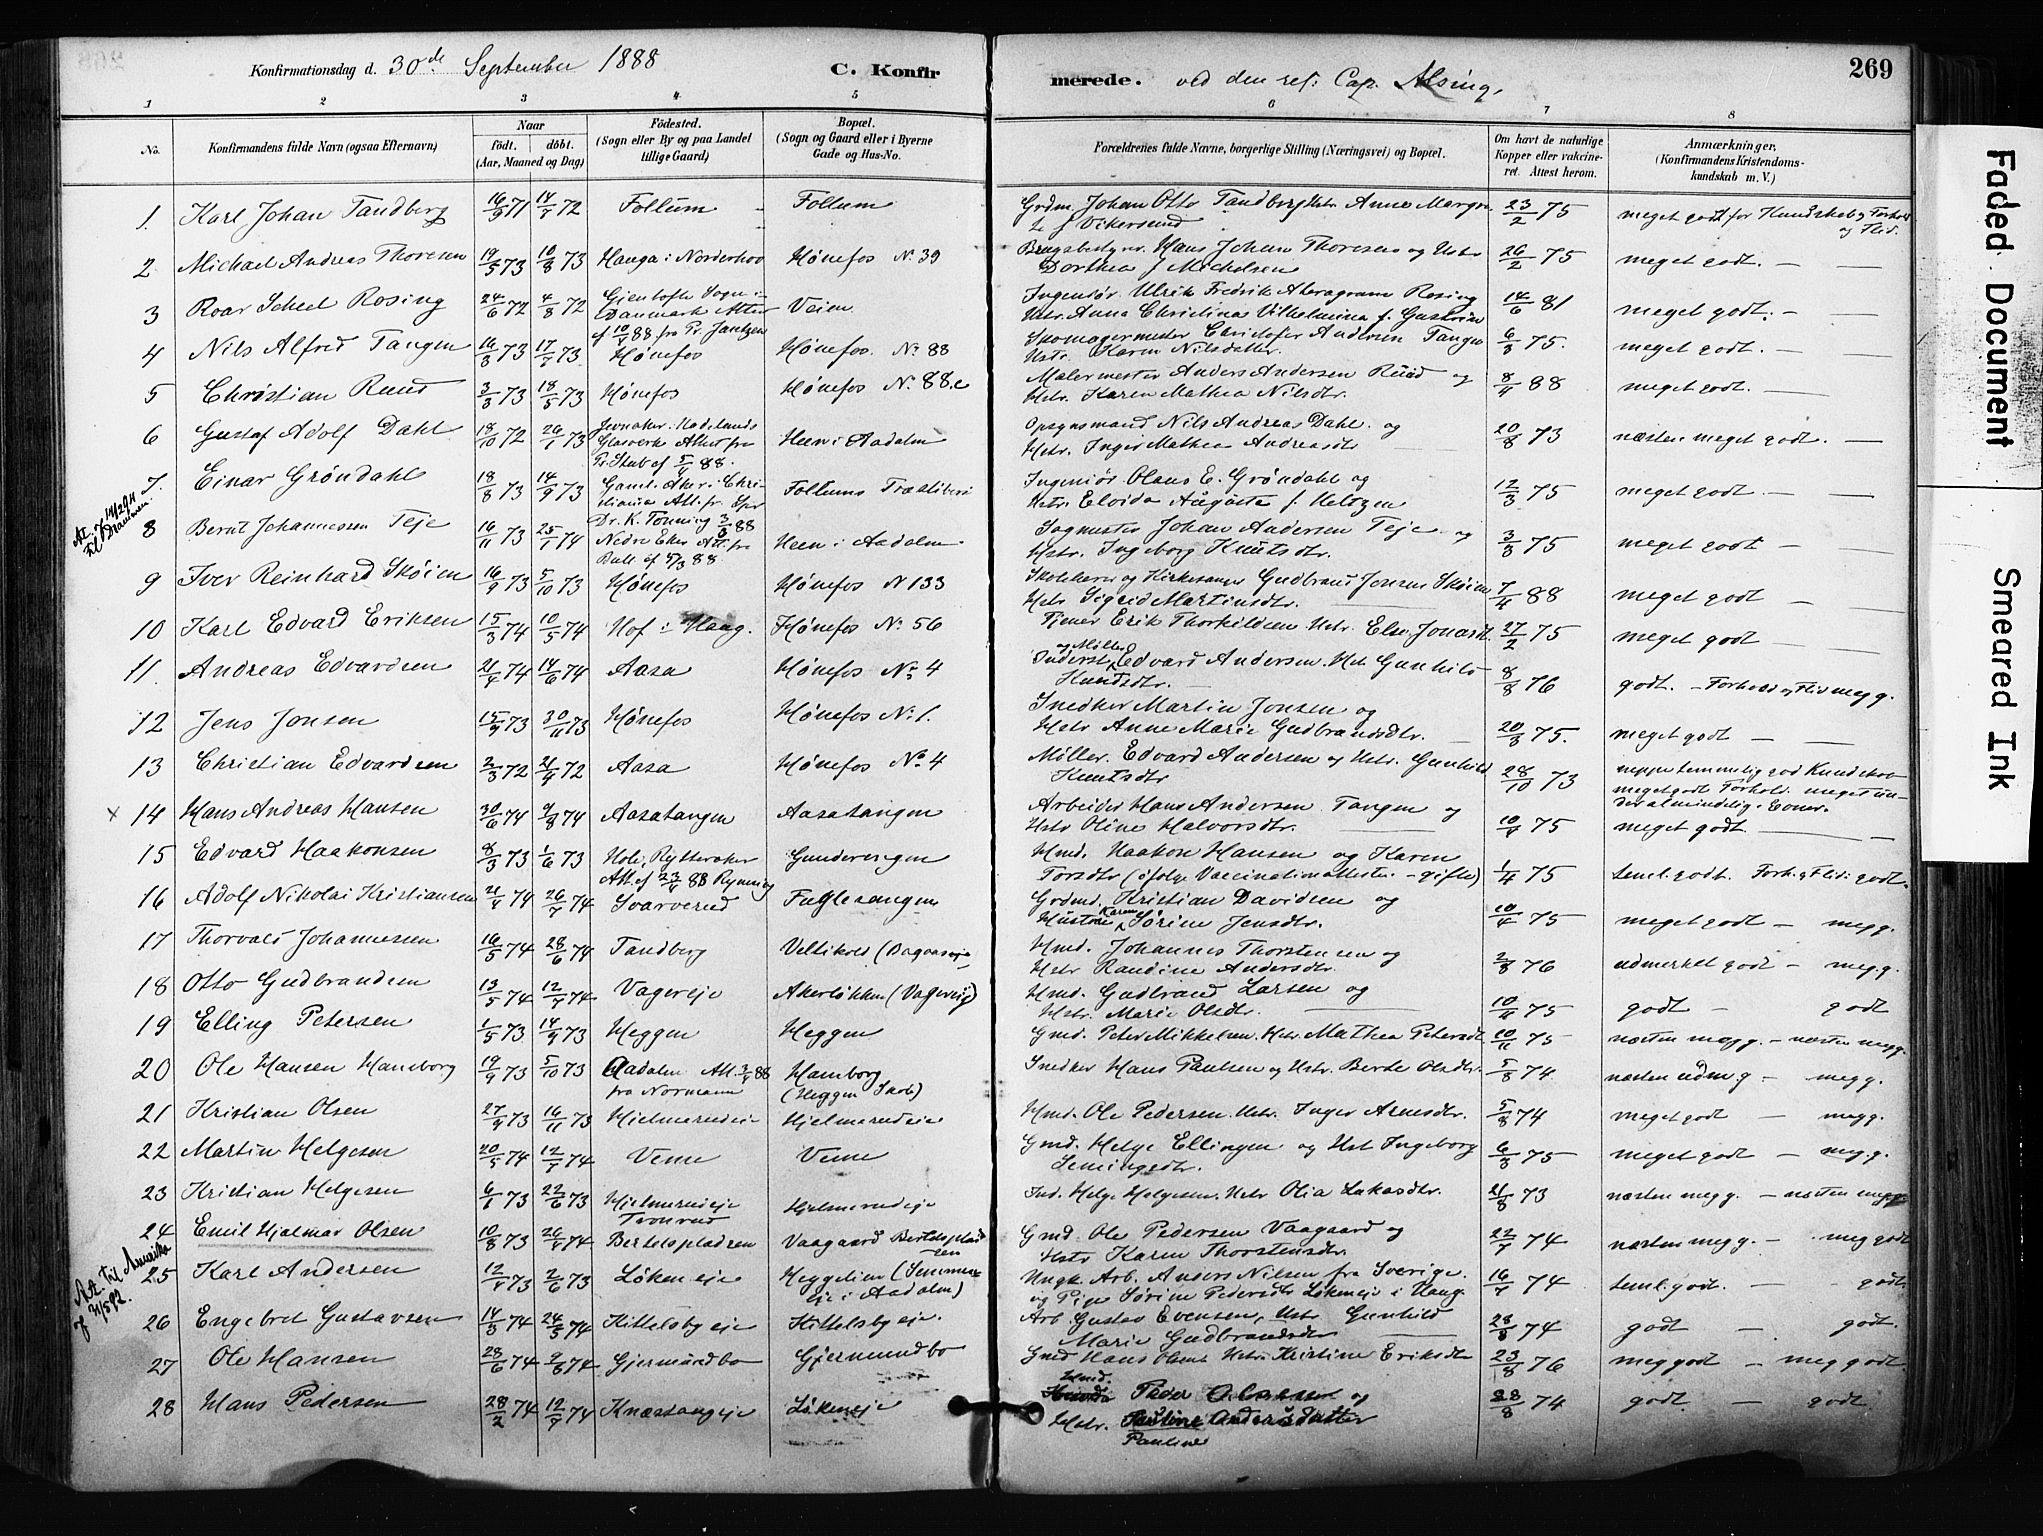 Konfirmationsdag d. 30de September 1888 C. Konfirmerede. ved den res: Cap. Alsing, 269
1 2 3 4 5 6 7 8
No. Konfirmandens fulde Navn (ogsaa Efternavn) Naar født. døbt. (Aar, Maaned og Dag) Fødested. (Sogn eller By og paa Landet tillige Gaard) Bopæl. (Sogn og Gaard eller i Byerne Gade og Hus-No. Forældrenes fulde Navne, borgerlige Stilling (Næringsvei) og Bopæl. Om havt de naturlige Kopper eller vakcineret. Attest herom. Anmærkninger, (Konfirmandens Kristendomskundskab m. V.)
1. Karl Johan Tandberg 16/9 71 14/7 72 Follum Follum Johan Otto Tandberg Hstr. Anne f Vikersund 23/2 75 meget godt for Kundskab og Forhold og Flid.
2 Michael Andreas Thoresen 19/5 73 10/8 73 Hauga i Norderhov Hønefos No 39 Brugsbestyrer Hans Johan Thoresen og Hstr Dorthea f Michelsen 26/2 75 meget godt.
3 Roar Scheel Rosing 24/6 72 4/8 72 Gjentofte Sogn i Danmark Attest af 10/4 88 fra Pr. Jantzen Veien Ingeniør Ulrik Fredrik Rosing Hstr. Anna Christina Vilhelmina f. 14/6 81 meget godt.
4 Nils Alfred Tangen 16/3 73 17/7 73 Hønefos Hønefos. No 88 Skomagermester Christofer Andersen Tangen Hstr. Karen Nilsdatter. 6/3 75. meget godt.
5 Christian Ruud 3/3 73 18/5 73 Hønefos Hønefos No 88.c Malermester Anders Andersen Ruud og Hstr. Karen Mathea Nilsdtr. 8/4 88 meget godt.
6 Gustaf Adolf Dahl 18/10 72 26/1 73 Jevnaker. Hadelands Glasverk Attest fra Pr. Stub af 5/4 88. Heen i Aadalen Opsynsmand Nils Andreas Dahl. og Hstr. Inger Mathea Andreasdtr 20/8 73 næsten meget godt.
7. Einar Grøndahl 18/8 73 14/9 73 Gaml. Aker i Christiania Att. fr. Spr Dr. K. Tønning 3/3 88 Follums Træsliberi Ingeniør Olaus E. Grøndahl og Hstr. Elvida Augusta f. 12/3 75 meget godt.
8 Bernt Johannesen Teje 16/11 73 25/1 74 Nedre Eker Att. fra Dall af 5/3 88 Heen i Aadalen Sagmester Johan Andersen Teje og Hstr. Ingeborg Knutsdtr. 3/3 75 meget godt
9 Iver Reinhard Skøien 16/9 73 5/10 73 Hønefos Hønefos N 133 Skolelærer og Kirkesanger Gudbrand Jensen Skøien Hstr Sigrid Martinsdtr. 7/4 88 meget godt
10 Karl Edvard Eriksen 15/3 74 10/5 74 Hof i Haug. Hønefos No 56 Tjener Erik Thorkildsen Hstr. Else Jonasdt. 27/2 75 meget godt
11. Andreas Edvardsen 21/4 74 14/6 74 Aasa Hønefos No 4 Inderst og Møller Edvard Andersen. Hst Gunhild Knutsdtr. 8/8 76 godt. - Forhold og Flid meg g.
12 Jens Jonsen 15/9 73 30/11 73 Hønefos Hønefos No 1. Snedker Martin Jonsen og Hstr Anne Marie Gudbrandsdtr. 20/3 75. meget godt
13 Christian Edvardsen 2/3 72 21/4 72 Aasa Hønefos No 4 Møller. Edvard Andersen og Hstr. Gunhild Knutsdtr 28/10 73 neppe temmelig god Kundskab meget godt Forhold. meget under almindelig Evner.
x 14 Hans Andreas Hansen 30/6 74 9/8 74 Aasatangen Aasatangen Arbeider Hans Andersen Tangen og Hstr Oline Halvorsdtr. 10/4 75 meget godt.
15 Edvard Haakonsen 8/3 73 1/6 73 Hole, Rytteraker Att. af 23/4 88 Ryning Gundersegen Hmd. Haakon Hansen og Karen Torsdtr (ifølge Vaccinationsattesten - gifte) 1/4 75 teml. godt. Forh. og Flid: godt.
16 Adolf Nikolai Kristiansen 21/4 74 26/7 74 Svarverud Fuglesangen Grdmd. Kristian Davidsen og Hustru Karen Sørine Jensdtr. 10/4 75 meget godt - meg g.
17 Thorvald Johannesen 16/5 74 28/6 74 Tandberg Veltikold Hmd. Johannes Thorstensen og Hstr Randine Andersdtr. 2/8 76 udmerket godt - meg g.
18 Otto Gudbrandsen 13/5 74 12/7 74 Vagereje Akerløkken (Vagereje) Hmd. Gudbrand Larsen og Hstr. Marie Olsdtr. 10/4 75 godt - godt
19 Elling Petersen 1/5 73 14/9 73 Heggen Heggen Gmd. Peter Mikkelsen. Hstr. Mathea Petersdt 10/11 75 næsten meg g. - næsten meg g.
20 Ole Hansen Hamborg 19/9 73 5/10 73 Aadalen Att. 3/4 88 fra Normann Hamborg (Heggen Skov) Snedker Hans Paulsen og Hstr. Berte Olsdtr. 5/8 74 næsten udm g - meg g.
21 Kristian Olsen 27/9 73 16/11 73 Hjelmerudeie Hjelmerudeie Hmd. Ole Pedersen. Hstr. Inger Arnesdtr. 5/8 74 meget godt - meg g.
22 Martin Helgesen 20/5 74 12/7 74 Veme Veme Gmd. Helge Ellingsen og Hst Ingeborg 6/3 75 meget godt - meg. g.
23 Kristian Helgesen 6/1 73 22/6 73 Hjelmerudeje Hjelmerudeje Ind. Helge Helgesen. Hstr Olia Lukasdtr. 21/8 73 næsten meg g. - næsten meg g.
24 Emil Hjalmar Olsen 10/8 73 26/4 74 Tronrud Bertelspladsen Vaagaard Bertelspladsen Gmd. Ole Pedersen Vaagaard og Hstr Karen Thorstensdtr. 22/7 74 næsten meg g. - meg godt
25 Karl Andersen 12/4 73 2/6 73 Løkeneje Heggelien eje i Aadalen) Ungk. Arb. Anders Nilsen fra Sverige. og Pige Sørine Pedersdtr Løkeneje i Haug. 16/7 74 teml. godt. - godt.
26 Engebret Gustavsen 14/3 74 24/5 74 Kittelsbyeje Kittelsbyeje. Arb Gustav Evensen, Hstr Gunhild Marie Gudbrandsdtr 28/8 74 godt - godt.
27 Ole Hansen 28/6 74 9/8 74 Gjermundbo Gjermundbo Gmd Hans Olsen Hstr. Kristine Eriksdtr 23/8 76 meg godt - meg godt.
28 Hans Pedersen 28/2 74 12/7 74 Knæstangeje Løkeneje Hmd. Peder og Hstr. Pauline Andersdatter Pauline 28/8 74 godt. - godt.
At. 14/2 94 til Drammen
At. til Amerika
Faded Document
Smeared Ink